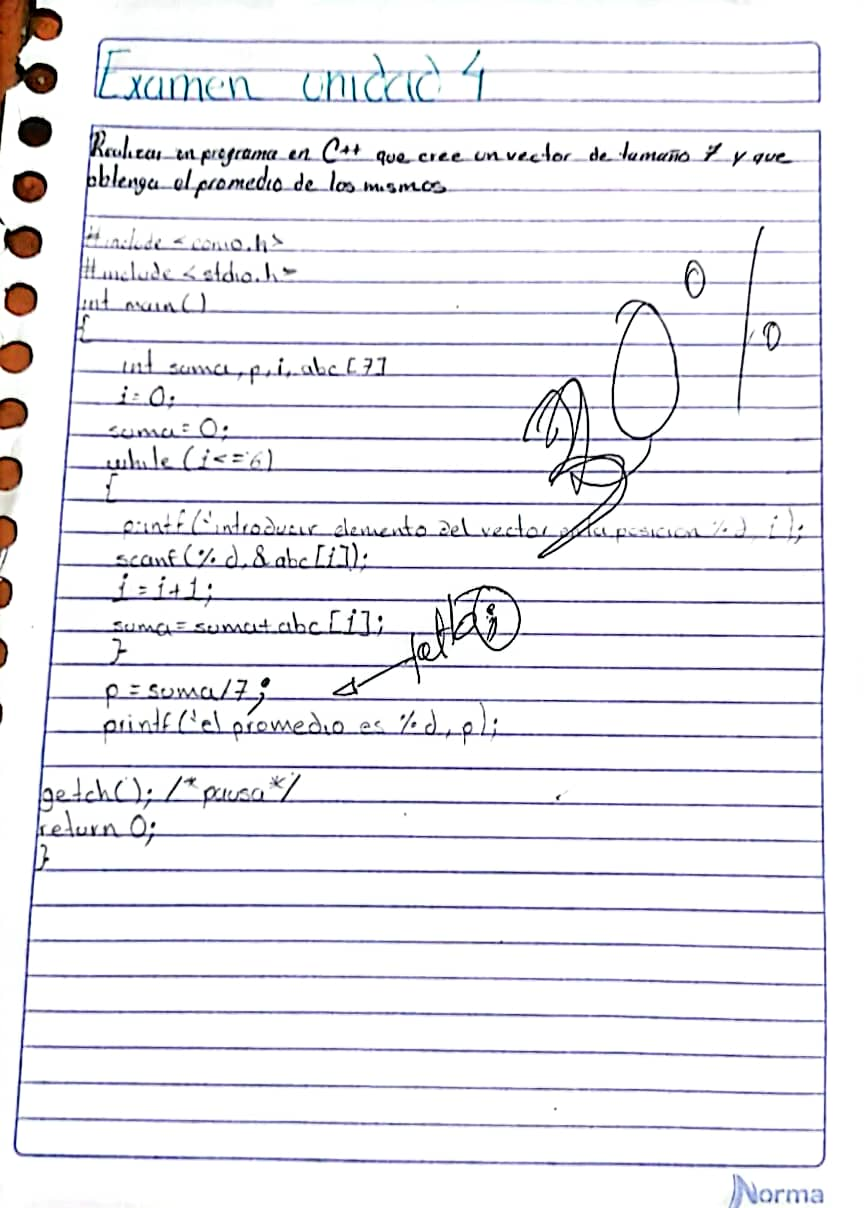 Examen unidad 4
Realizar un programa en C++ que cree un vector de tamaño 7 y que
obtenga el promedio de los mismos
#include <conio.h>
#include <stdio.h>
int main()
{
int suma, p, i, abc [7]
i=0;
suma=0;
while (i<=6)
{
printf("introducir elemento del vector en la posicion %d, i);
scanf(%d, &abc[i]);
i=i+1;
suma=suma+abc[i];
}
falta ;
p=suma/7;
printf("el promedio es %d, p);
getch(); /*pausa*/
return 0;
}
Norma